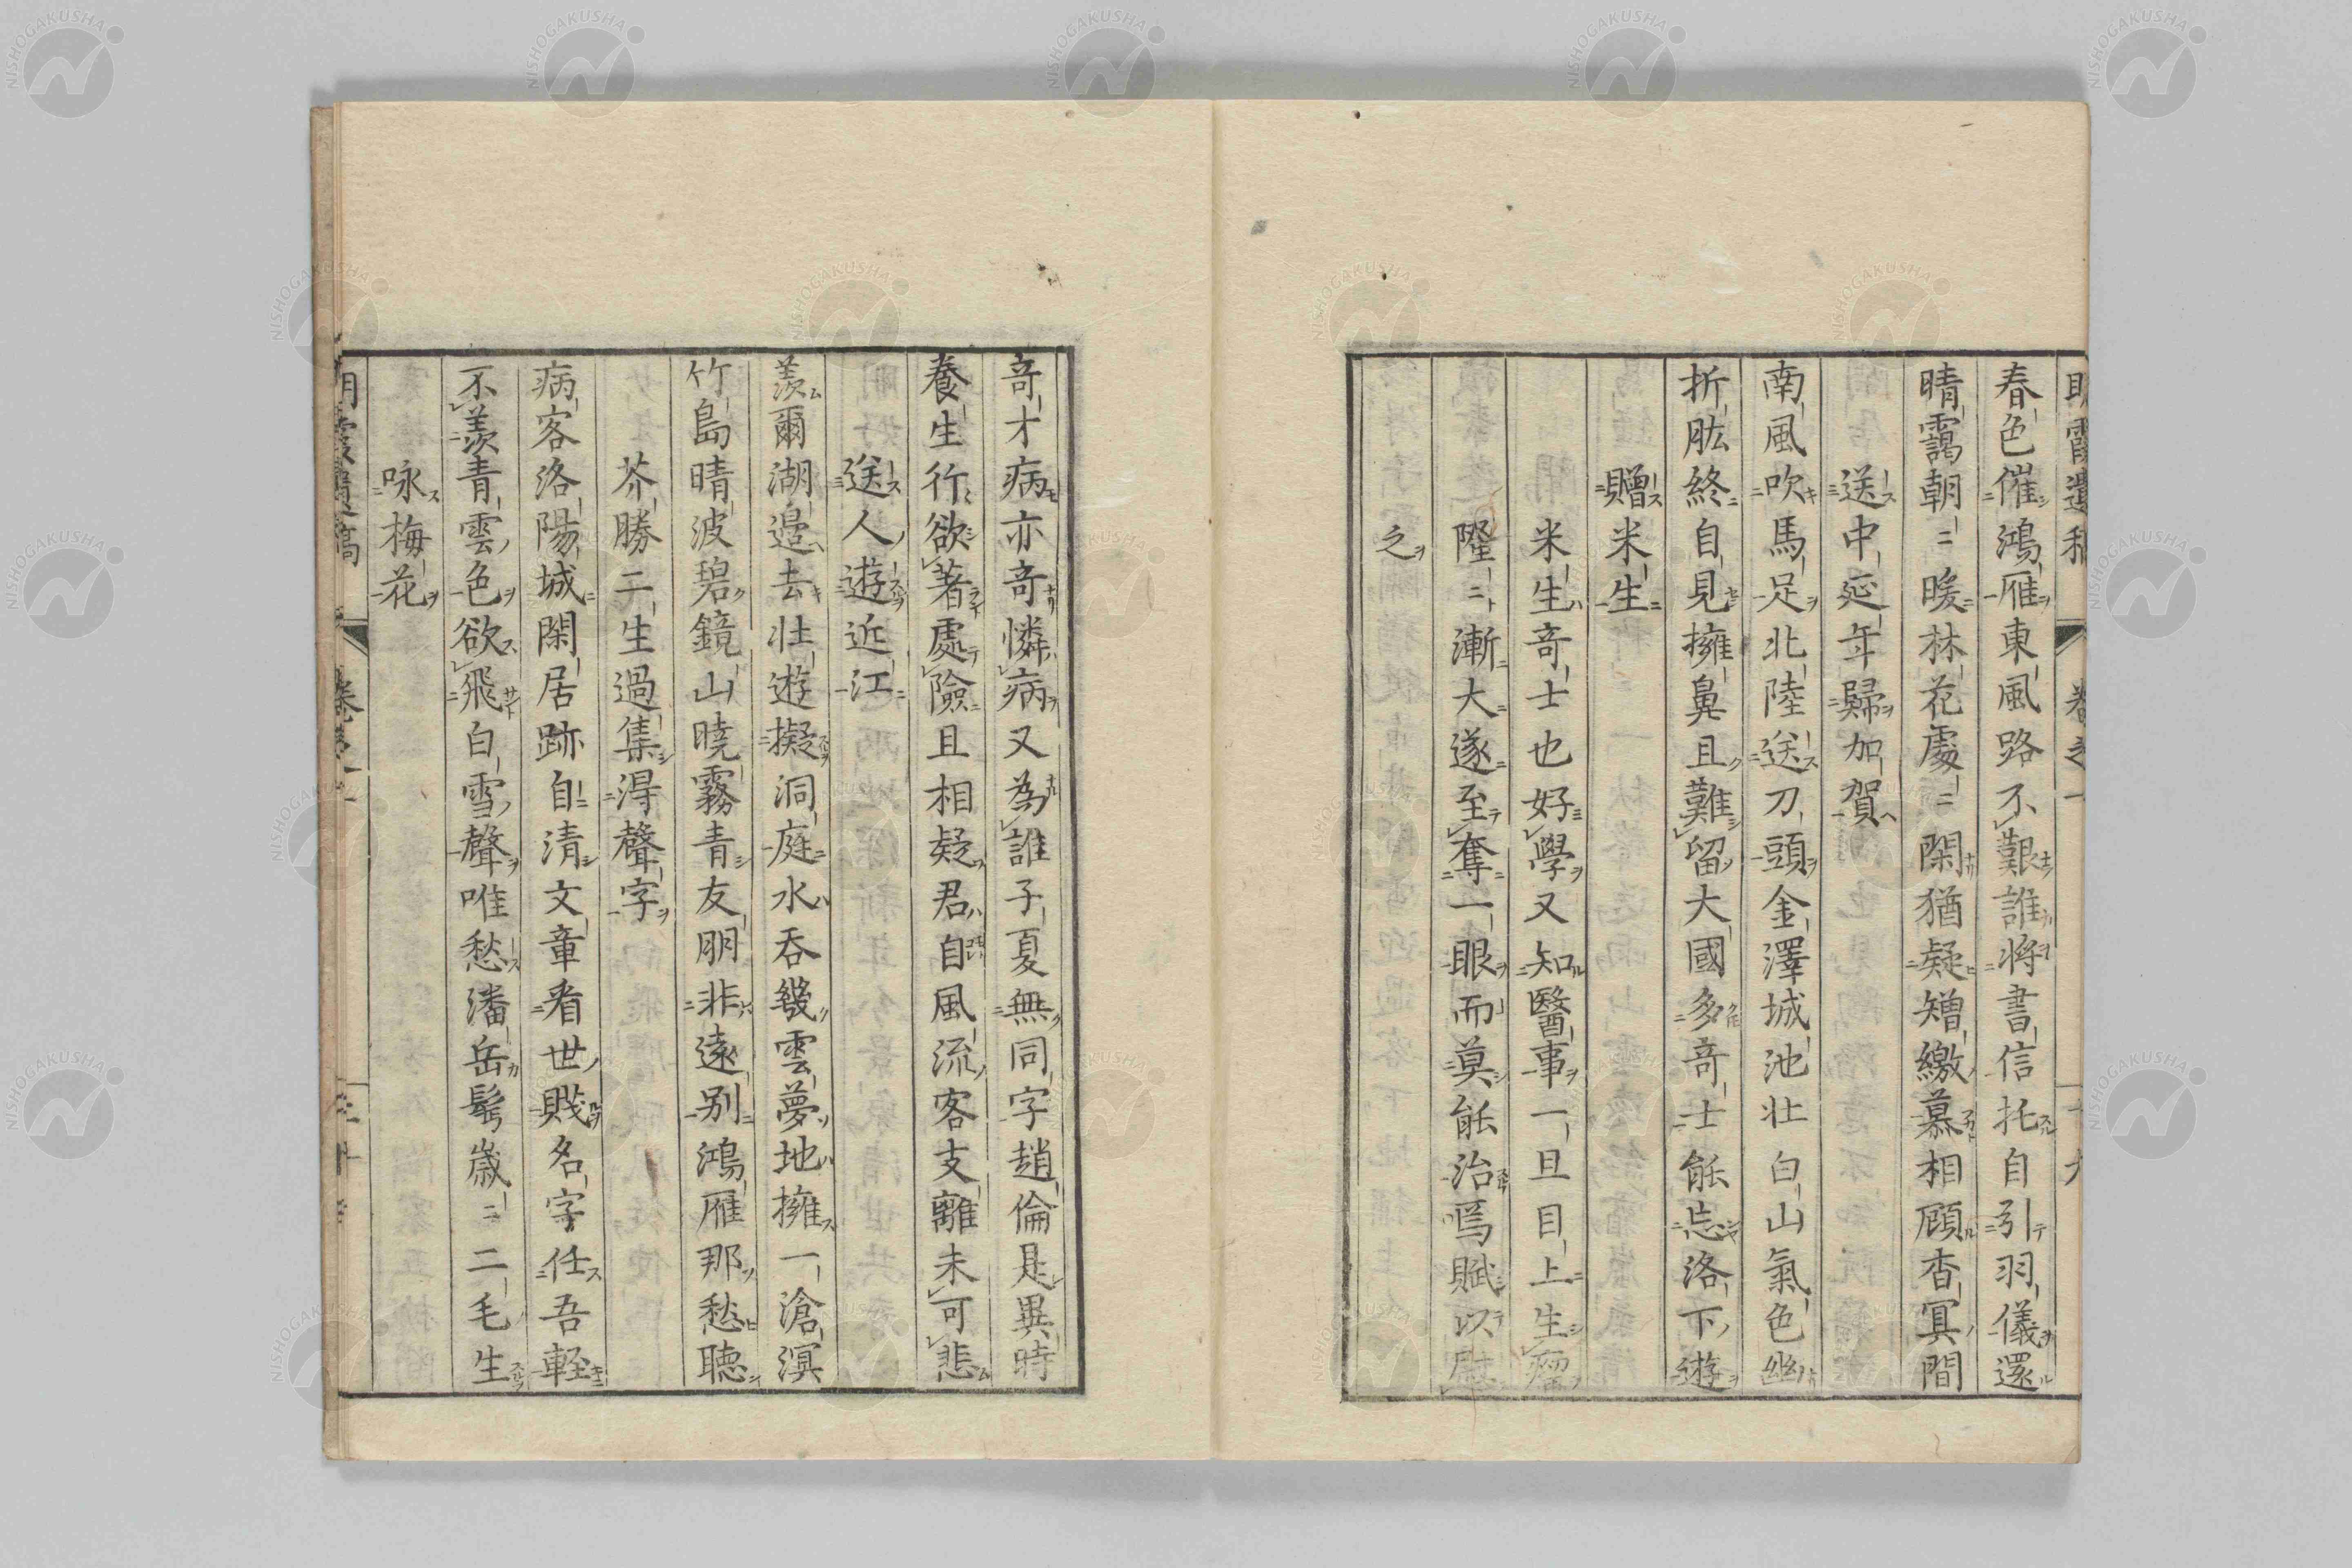 明霞遺稿 卷之一 十九
春色催鴻雁東風路不艱誰將書信托自引羽儀還
晴靄朝〻暖林花處〻閑猶疑矰繳慕相顧杳冥間
送中延年歸加賀
南風吹馬足北陸送刀頭金澤城池壯白山氣色幽
折肱終自見擁鼻且難留大國多奇士能忘洛下遊
贈米生
米生奇士也好學又知醫事一旦目上生瘤
隆〻漸大遂至奪一眼而莫能治焉賦以慰
之
奇才病亦奇憐病又為誰子夏無同字趙倫是異時
養生行欲著處險且相疑君自風流客支離未可悲
送人遊近江
羨爾湖邉去壯遊擬洞庭水吞幾雲夢地擁一滄溟
竹島晴波碧鏡山曉霧青友朋非遠別鴻雁那愁聽
芥勝二生過集得聲字
病客洛陽城閑居跡自清文章看世賤名字任吾輕
不羨青雲色欲飛白雪聲唯愁潘岳髩歲〻二毛生
咏梅花
明霞遺稿 卷之一
NISHOGAKUSHA